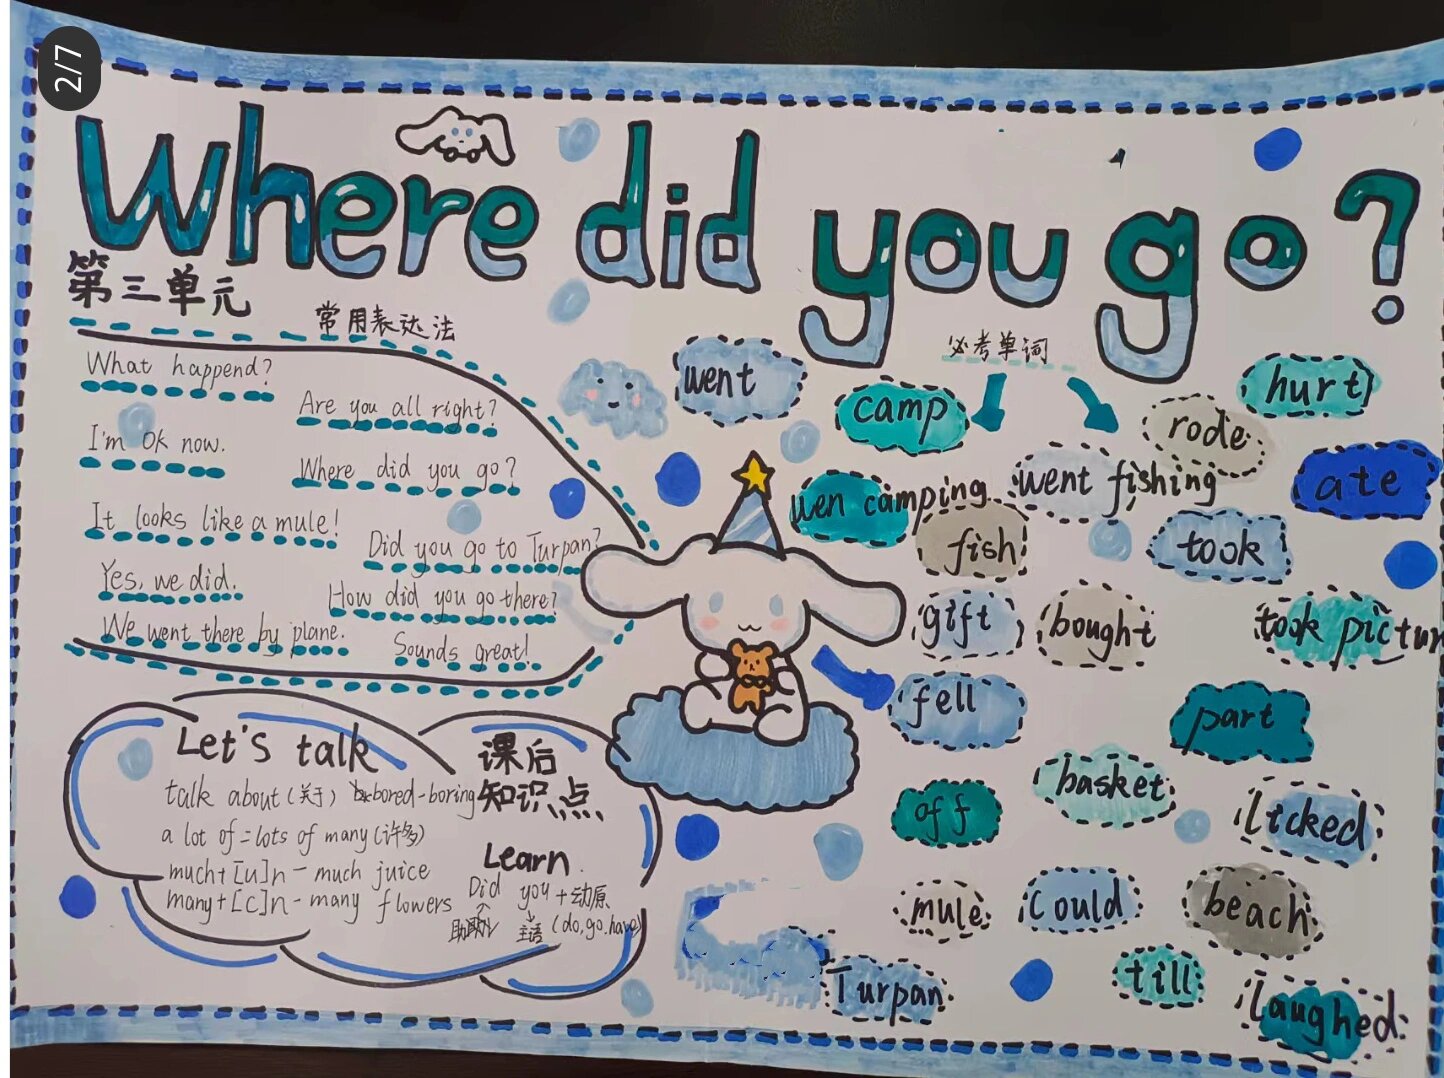 2/7
Where did you go?
第三单元
常用表达法
What happend?
Are you all right?
I'm OK now.
Where did you go?
It looks like a mule!
Did you go to Turpan?
Yes, we did.
How did you go there?
We went there by plane.
Sounds great!
必考单词
went
camp
rode
hurt
wen camping
went fishing
ate
fish
took
gift
bought
took pictur
fell
part
off
basket
licked
mule
could
beach
Turpan
till
laughed
Let's talk
talk about (关于) bored-boring
a lot of = lots of many (许多)
much+[u]n - much juice
many+[c]n - many flowers
课后
知识点
Learn
Did you + 动原
主语 (do, go, have)